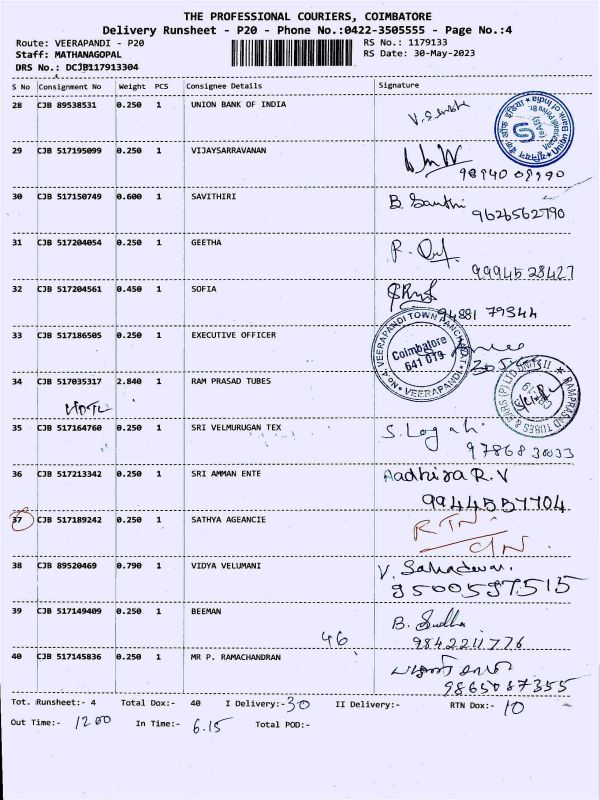 THE PROFESSIONAL COURIERS, COIMBATORE
Delivery Runsheet - P20 - Phone No.:0422-3505555 - Page No.:4
Route: VEERAPANDI - P20 RS No.: 1179133
Staff: MATHANAGOPAL RS Date: 30-May-2023
DRS No.: DCJB117913304
S No Consignment No Weight PCS Consignee Details Signature
28 CJB 89538531 0.250 1 UNION BANK OF INDIA
Union Bank of India
29 CJB 517195099 0.250 1 VIJAYSARRAVANAN
30 CJB 517150749 0.600 1 SAVITHIRI B. Santhi
9626562790
31 CJB 517204054 0.250 1 GEETHA
99945 28427
32 CJB 517204561 0.450 1 SOFIA
94881 79344
33 CJB 517186505 0.250 1 EXECUTIVE OFFICER
VEERAPANDI TOWN PANCHAYAT
Coimbatore
641 019
No.4 VEERAPANDI
34 CJB 517035317 2.840 1 RAM PRASAD TUBES
RAMPRASAD TUBES & BARS (P) LTD UNIT II
35 CJB 517164760 0.250 1 SRI VELMURUGAN TEX
97868 30033
36 CJB 517213342 0.250 1 SRI AMMAN ENTE Aadhira R.V
9944557704
37 CJB 517189242 0.250 1 SATHYA AGEANCIE RTN
38 CJB 89520469 0.790 1 VIDYA VELUMANI V. Sahadevan.
9500597515
39 CJB 517149409 0.250 1 BEEMAN B. Sudha
46 9842211776
40 CJB 517145836 0.250 1 MR P. RAMACHANDRAN
9865087355
Tot. Runsheet:- 4 Total Dox:- 40 I Delivery:- 30 II Delivery:- RTN Dox:- 10
Out Time:- 1200 In Time:- 6.15 Total POD:-